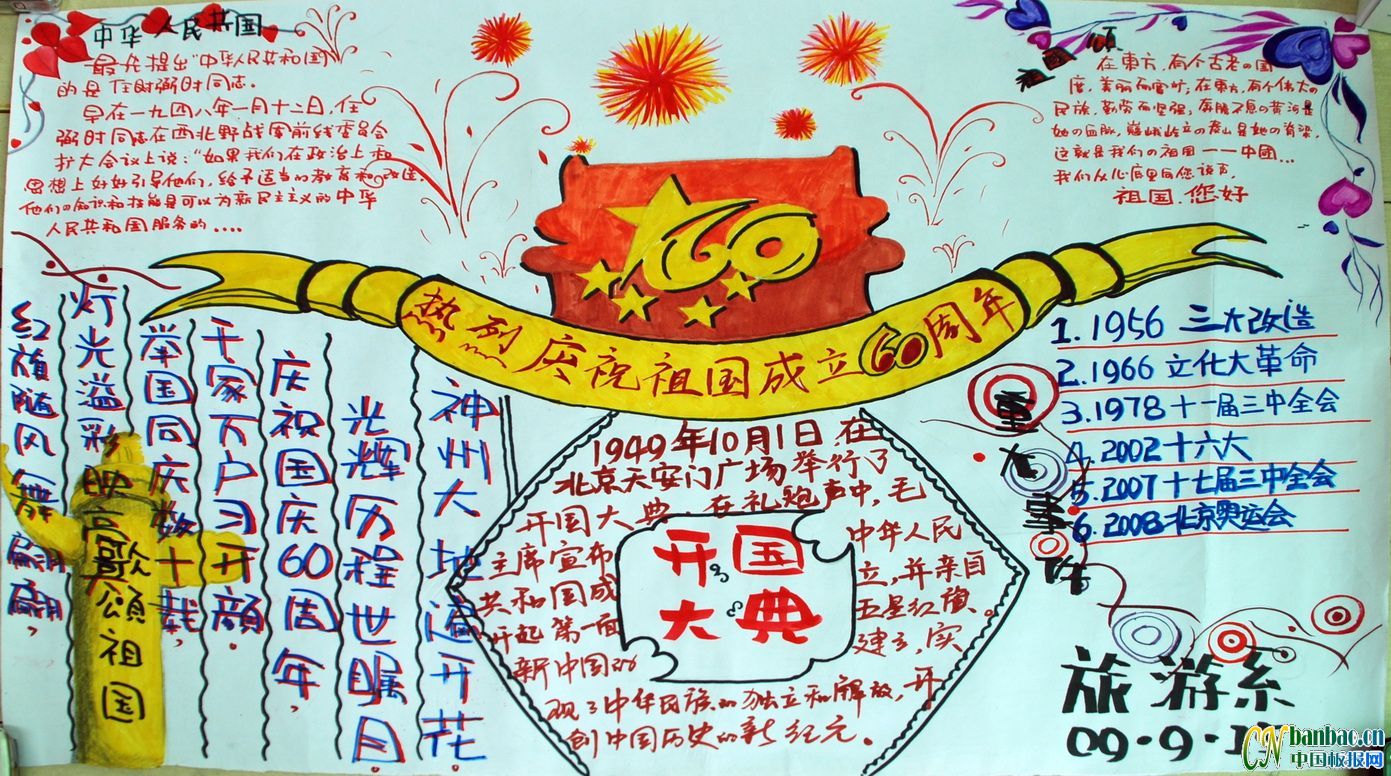 中华人民共国
最先提出"中华人民共和国"
的是任时弼时同志.
早在一九四八年一月十二日,任
弼时同志在西北野战军前线委员会
扩大会议上说:"如果我们在政治上和
思想上好好引导他们,给予适当的教育和改造,
他们的知识和技能是可以为新民主主义的中华
人民共和国服务的....
祖国颂
在东方,有个古老の国
度,美丽而富;在东方,有个伟大の
民族,勤劳而坚强,奔腾不息の黄河是
她の血脉,巍峨屹立の泰山是她の脊梁,
这就是我们の祖国——中國...
我们从心底里向您说声
祖国.您好
60
热列庆祝祖国成立60周年
神州大地遍开花
光辉历程世瞩目
庆祝国庆60周年,
千家万户习开颜
举国同庆数十载,
灯光溢彩映高歌颂祖国
红旗随风舞翩翩,
1949年10月1日,在
北京天安门广场举行了
开国大典.在礼炮声中,毛
主席宣布 中华人民
共和国成 立,并亲自
升起第一面 五星红旗。
新中国的 建立,实
现了中华民族的独立和解放,开
创中国历史的新纪元。
开国
大典
重大事件
1.1956 三大改造
2.1966 文化大革命
3.1978 十一届三中全会
4.2002 十六大
5.2007 十七届三中全会
6.2008 北京奥运会
旅游系
09.9.
CN banbao.cn
中国板报网